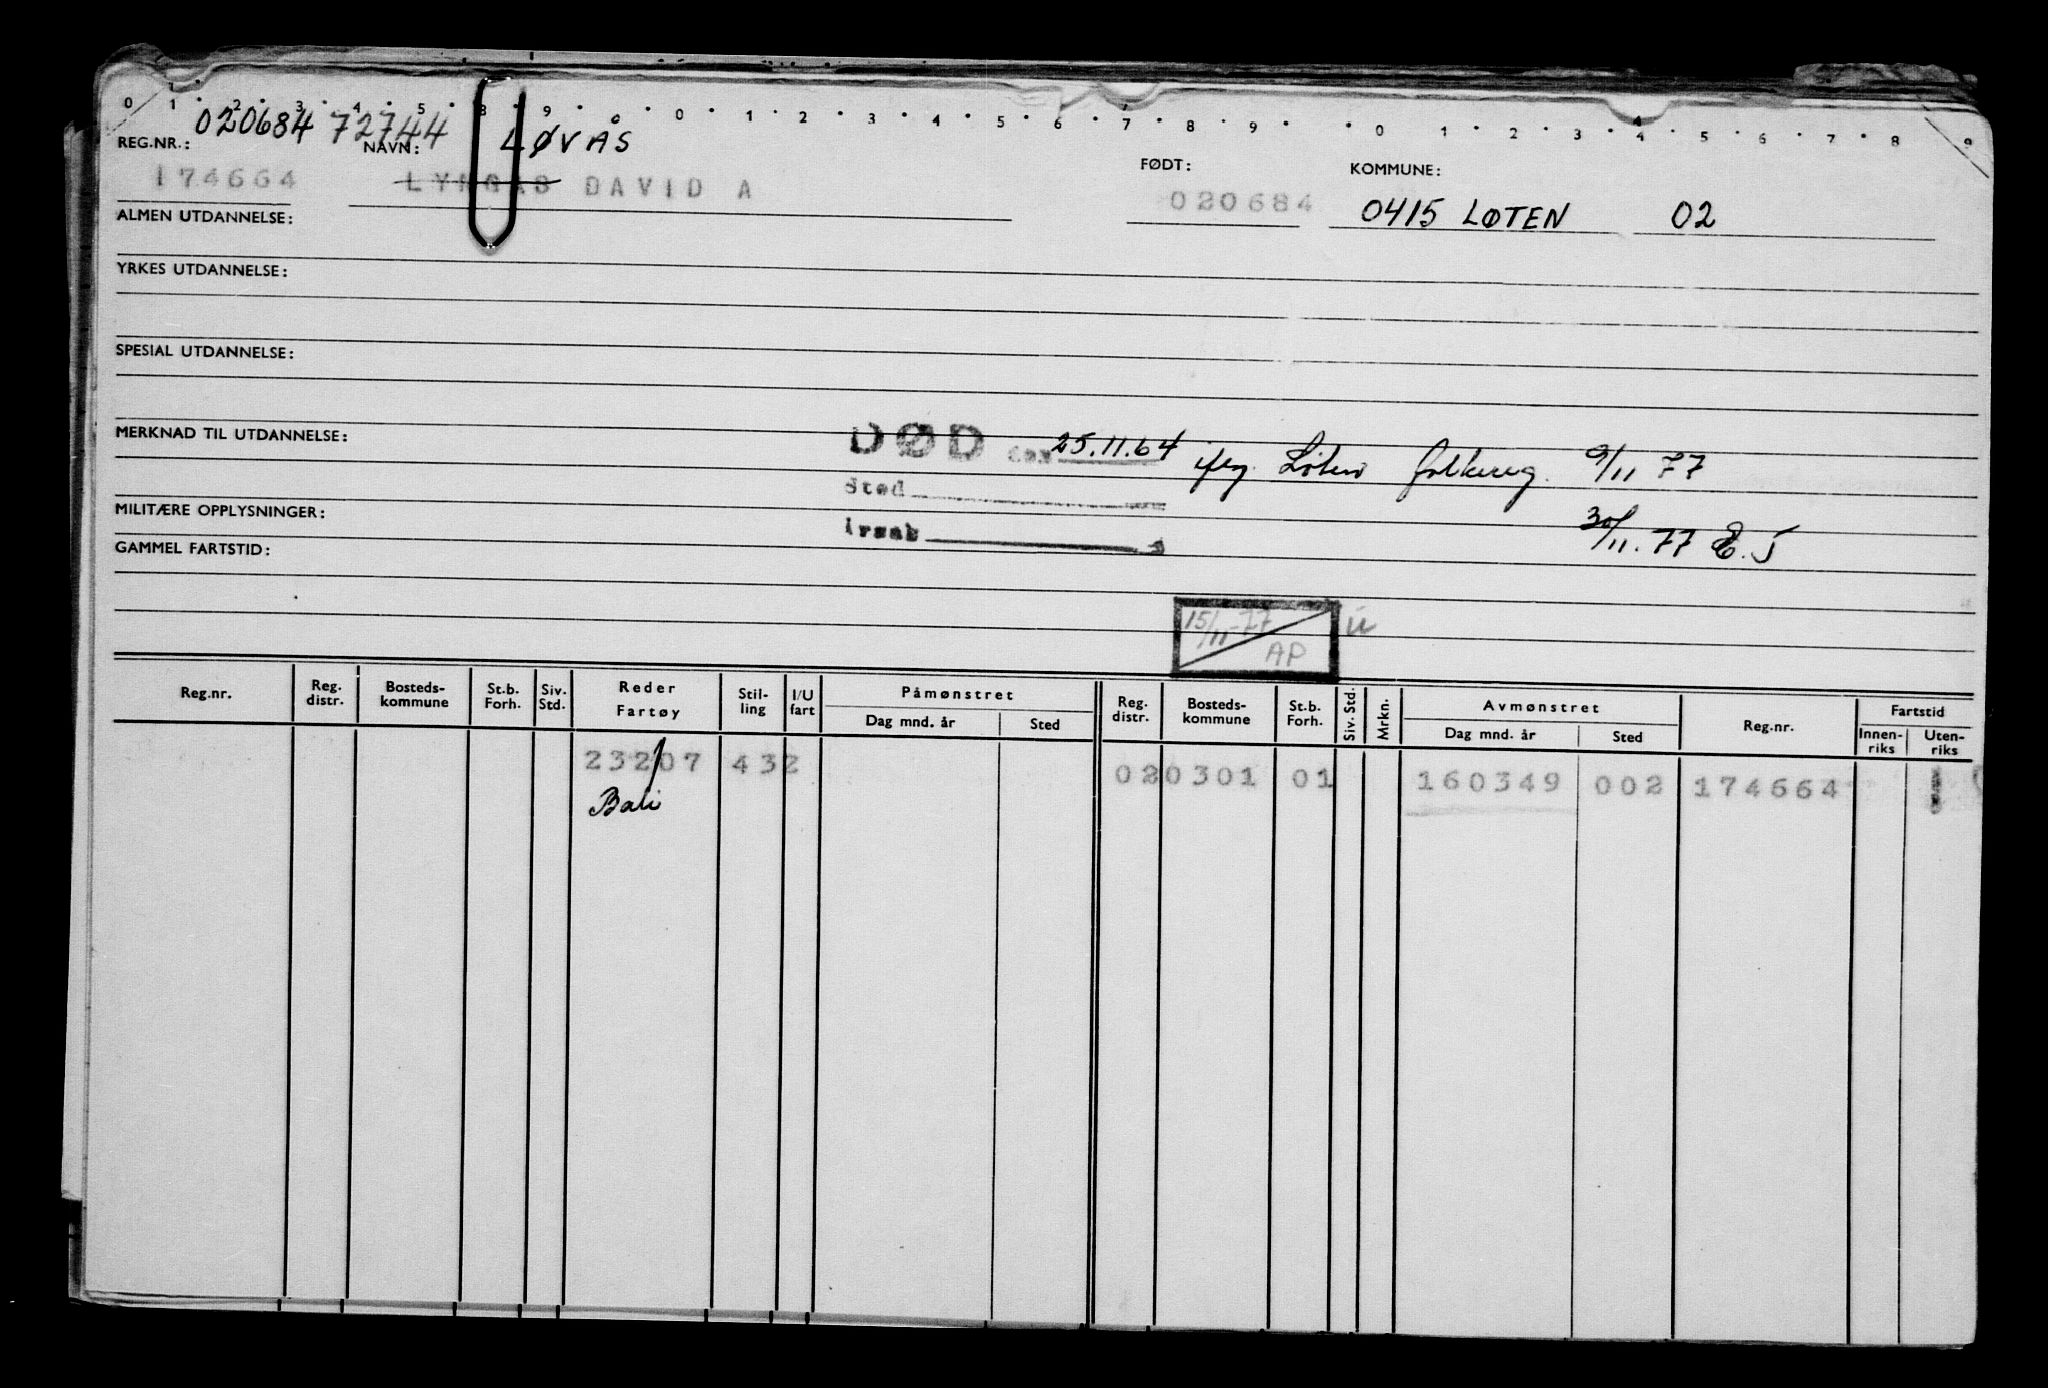 0 1 2 3 4 5 8 9 0 1 2 3 4 5 6 7 8 9 0 1 2 3 4 5 6 7 8 9
REG.NR.: 020684 72744 NAVN: LØVAS
FØDT: KOMMUNE:
174664 LYNGAS DAVID A 020684 0415 LØTEN 02
ALMEN UTDANNELSE:
YRKES UTDANNELSE:
SPESIAL UTDANNELSE:
MERKNAD TIL UTDANNELSE: DØD den 25.11.64 iflg. Løten folkereg. 9/11 77
Sted
MILITÆRE OPPLYSNINGER: 30/11.77 E.J
GAMMEL FARTSTID: Årsak
15/11-77
AP
Reg.nr. Reg. distr. Bosteds- kommune St.b. Forh. Siv. Std. Reder Fartøy Stil- ling I/U fart Påmønstret Dag mnd. år Sted Reg. distr. Bosteds- kommune St.b. Forh. Siv. Std. Mrkn. Avmønstret Dag mnd. år Sted Reg.nr. Fartstid Innen- riks Uten- riks
23207 432 020301 01 160349 002 174664
Bali